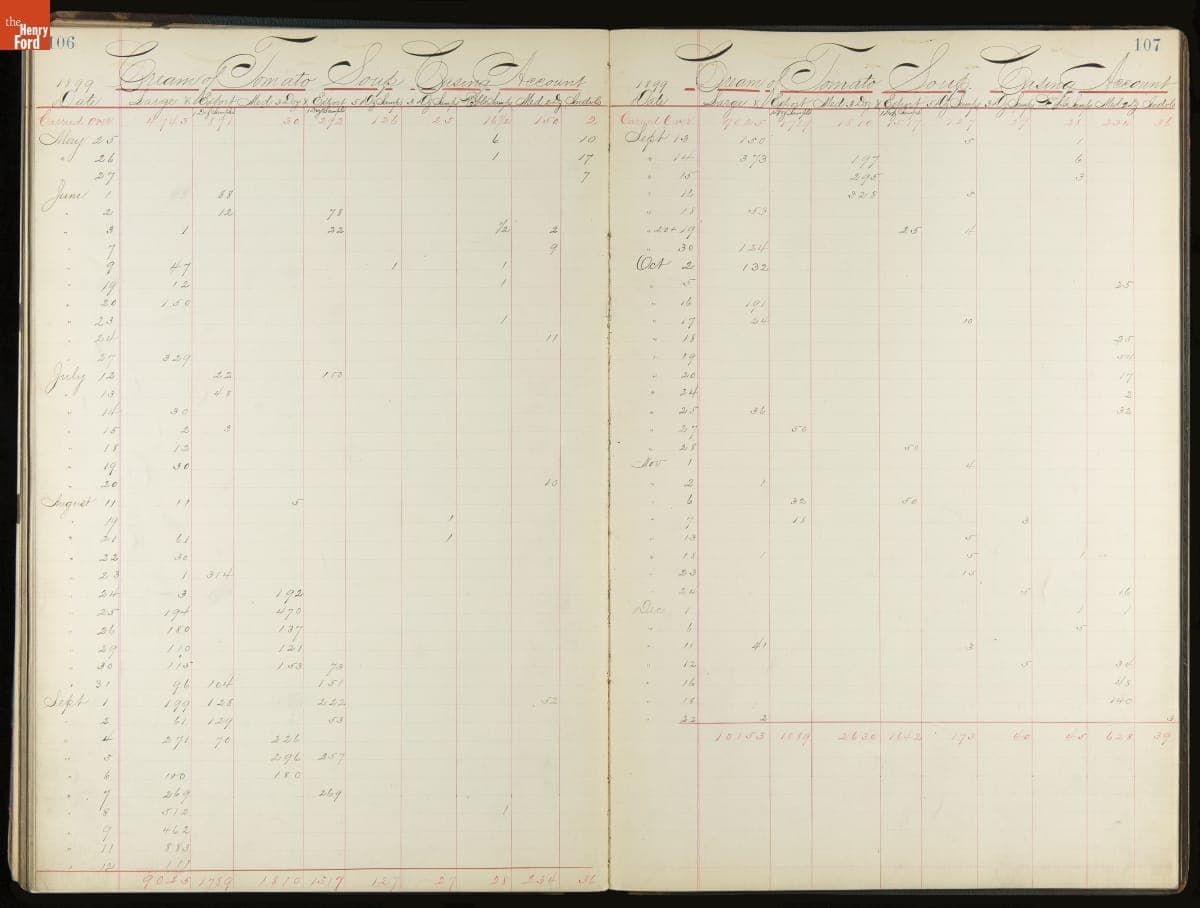 the Henry Ford
106
Cream of Tomato Soup Casing Account
1899
Date Large & Export Med. 3 Dz & Export
Carried Over 4743 30 292 126 25 150 2
May 25 6 10
" 26 1 17
27 7
June 1 88
" 2 12 78
" 3 1 22 1/2 2
7 9
" 9 47 1 1
" 19 12 1
" 20 150
" 23 1
" 24 11
" 27 329
July 12 22 150
" 13 48
" 14 30
" 15 2 3
" 18 12
" 19 30
" 20 10
August 11 11 5
" 19 1
" 21 61 1
" 22 30
" 23 1 314
" 24 3 192
" 25 194 470
" 26 180 137
" 29 110 121
" 30 115 153 73
" 31 96 104 151
Sept 1 199 128 222 52
" 2 61 129 53
" 4 271 70 226
" 5 296 257
" 6 100 180
" 7 269 269
" 8 512 1
" 9 462
" 11 883
" 12 111
9025 1789 1810 1519 127 27 28 234 36
107
Cream of Tomato Soup Casing Account
1899
Date Large & Export Med. 3 Dz & Export
Carried Over 9025 1789 1810 1517 127 27 36
Sept 13 150 5 1
" 14 373 197 6
" 15 295 3
" 16 328 5
" 18 53
" 20+19 25 4
" 30 124
Oct 2 132
" 5 25
" 16 191
" 17 24 10
" 18 25
" 19
" 20 17
" 24 2
" 25 36 32
" 27 50
" 28 50
Nov 1 4
" 2 1
" 6 32 50
" 7 18 3
" 13 5
" 18 1 5 1
" 23 15
" 24 5 16
Dec 1 1 1
" 6 5
" 11 41 3
" 12 5
" 16
" 18 140
" 22 2 3
10153 1889 2630 1642 173 40 45 628 39